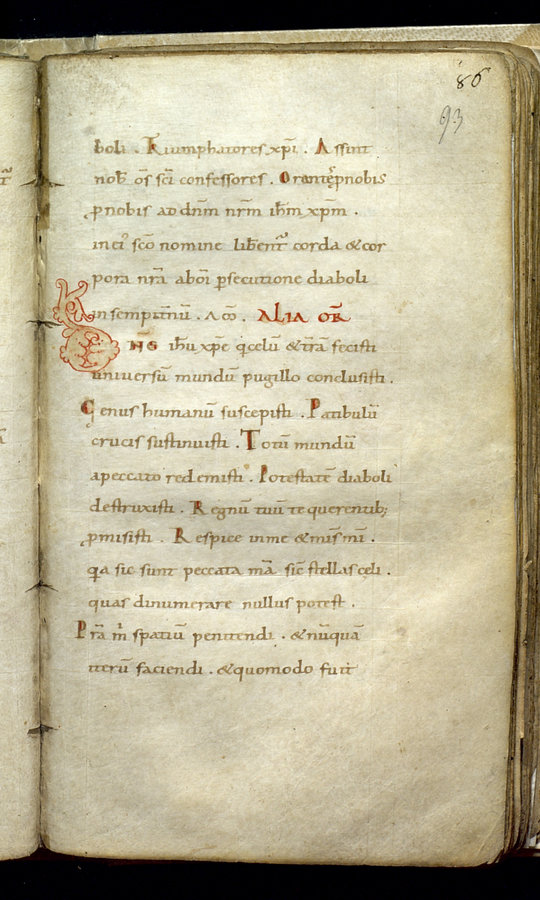 86
93
boli . Triumphatores xp̄i . Assint
nob̄ om̄s sc̄i confessores . Orent et p̱nobis
p̱nobis ad dn̄m nr̄m ih̄m xp̄m .
in ei' sc̄o nomine liben̄t corda & cor
pora nr̄a ab om̄i p̱secutione diaboli
in sempit̄nū . Am̄ . ALIA OR̄
Dn̄s ih̄u xp̄e q̇ celū & t̄rā fecisti
universū mundū pugillo conclusisti .
Genus humanū suscepisti . Patibulū
crucis sustinuisti . Totū mundū
apeccato redemisti . Potestatē diaboli
destruxisti . Regnū tuū te querentib;
p̱misisti . Respice in me & mis̄ m̄i .
qa sic sunt peccata m̄a sic̄ stellas cęli .
quas dinumerare nullus potest .
Pr̄a m̄ spatiū penitendi . & nūquā
iterū faciendi . & quomodo fuit